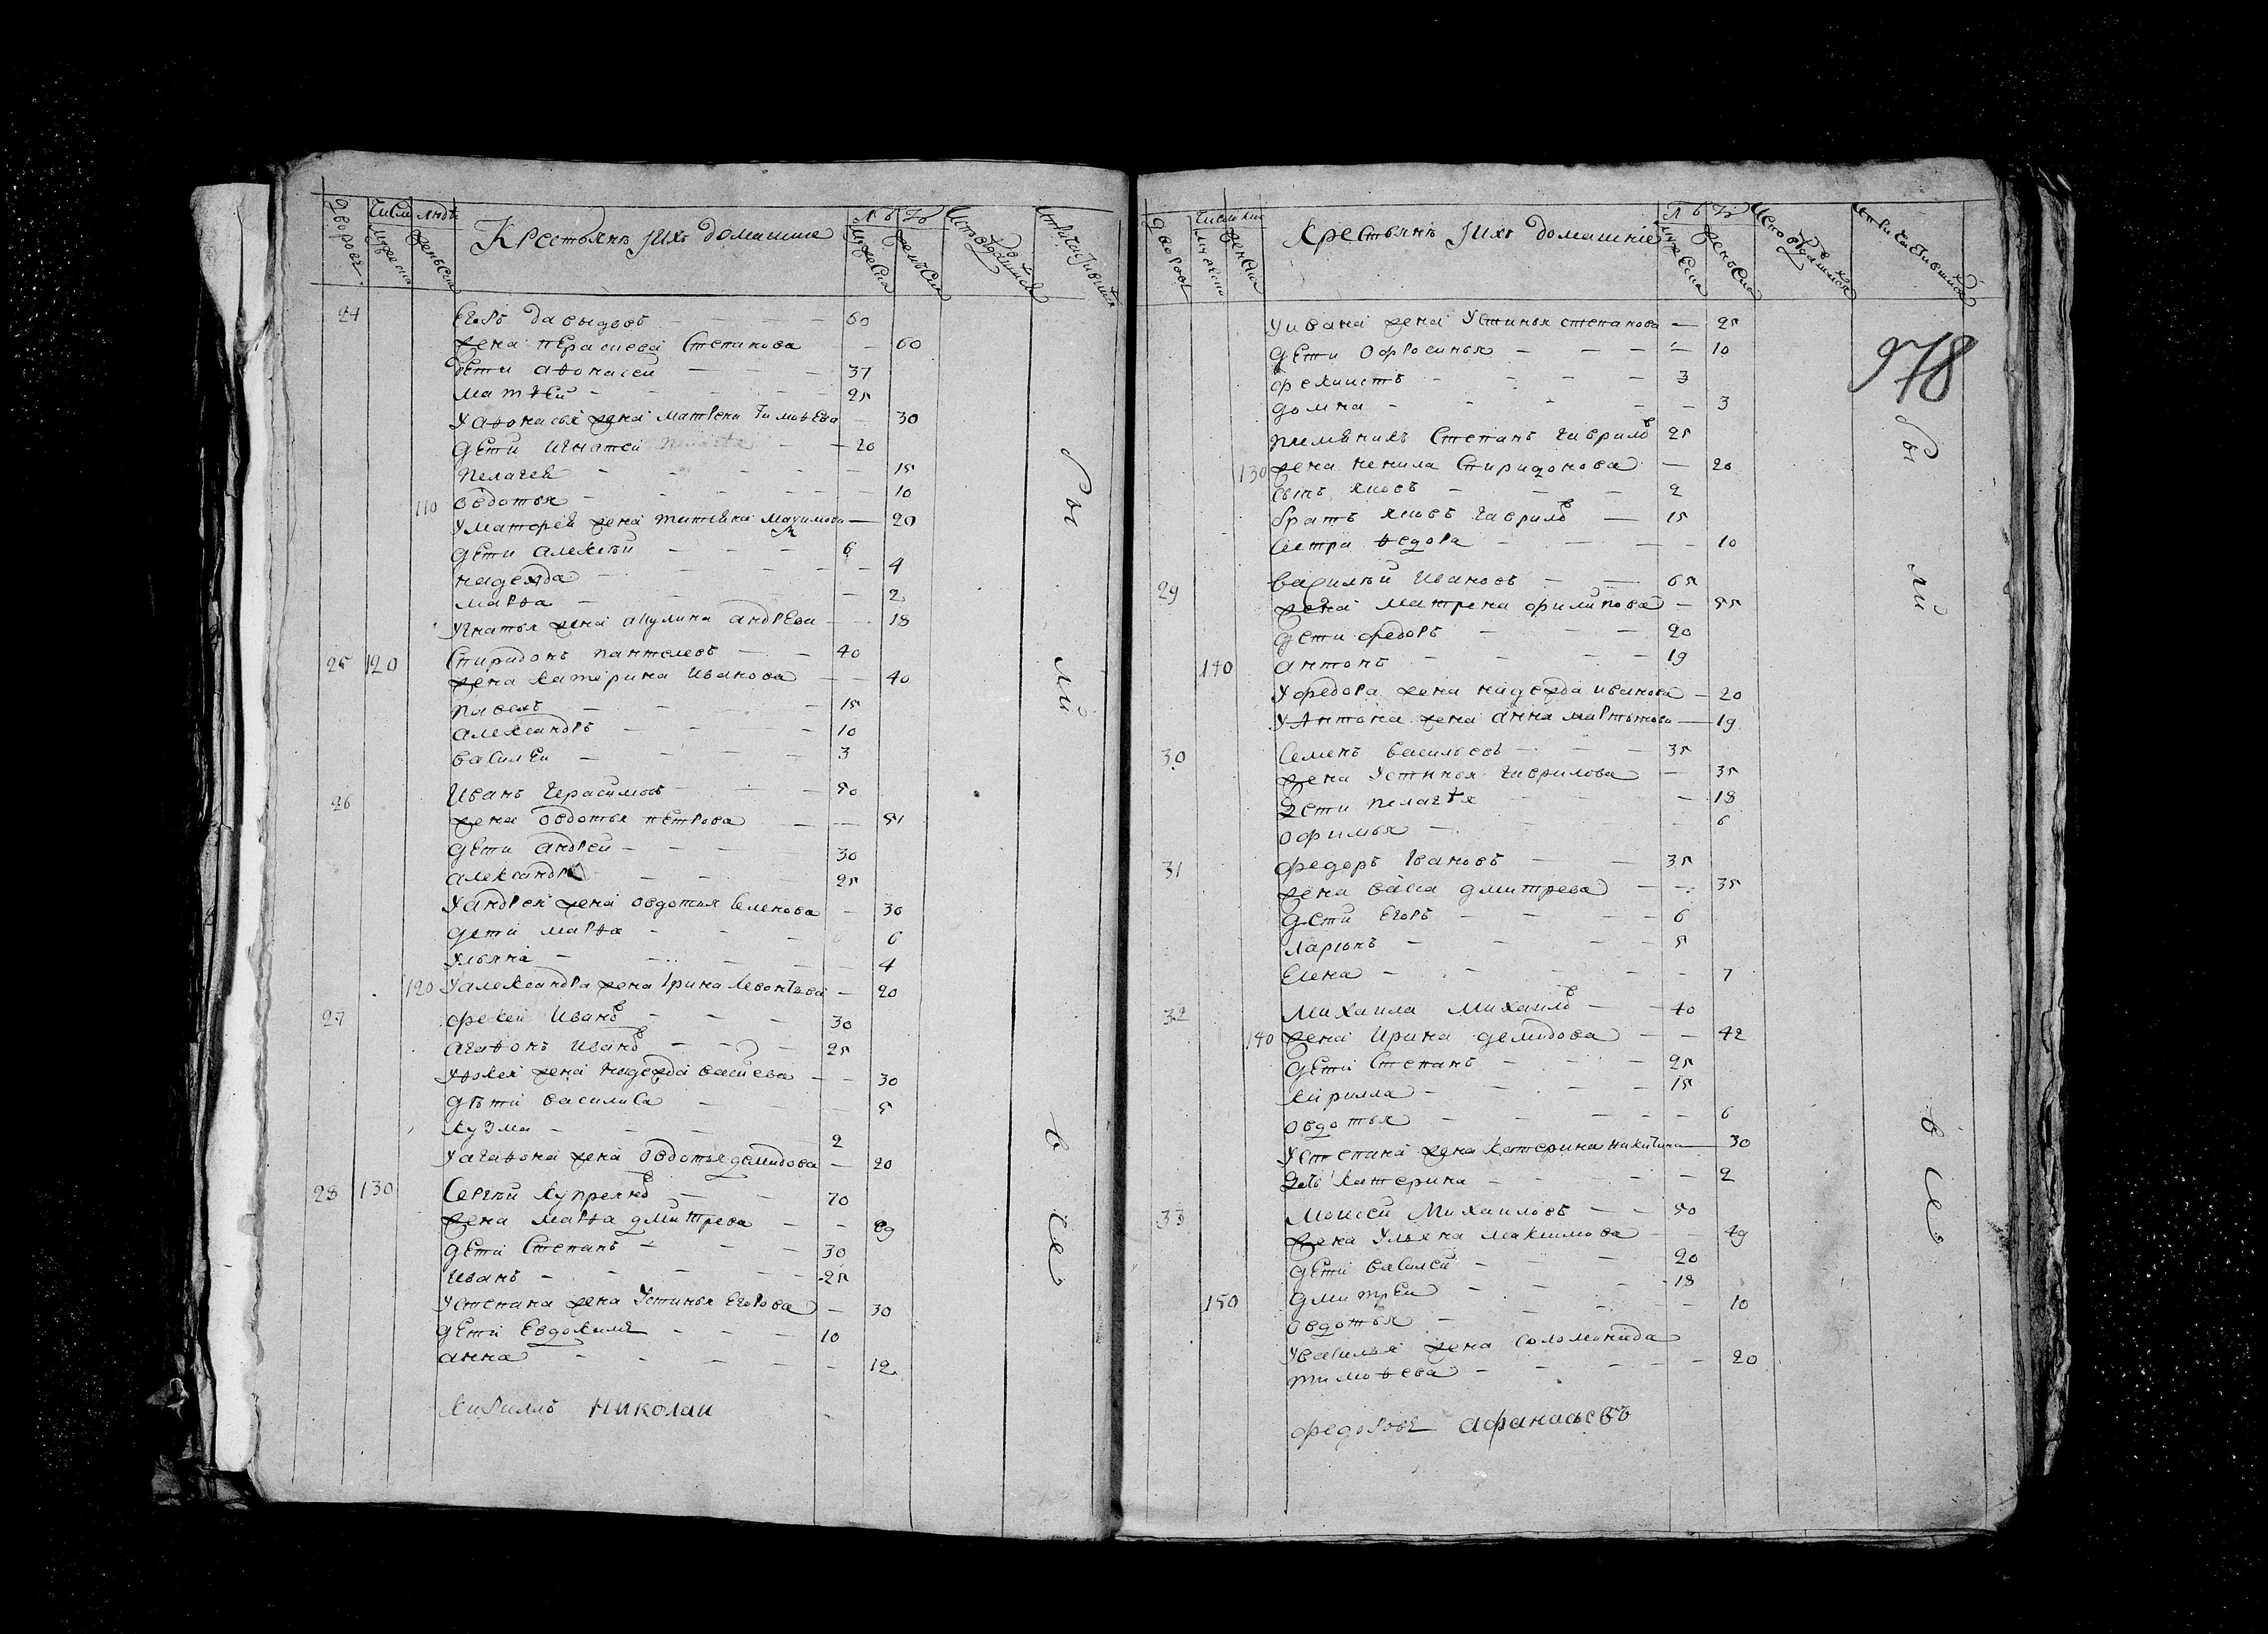 Дворовъ Числ людъ Крестьянъ Jихъ домашние Лѣтъ
мужеска женьска мужеска женьска Исповѣдались и причастившихся
24 Егоръ давыдовъ — 60
жена перасиева Степанова — 60
дети аѳонасеи — 37
матѳеи — 25
У аѳонасья жена матрена Тимоѳева — 30
дети игнатеи — 20
пелагея — 15
110 овдотья — 10
У матфея жена татьяна Мауимова — 20
дети алексѣй — 6
надежда — 4
марѳа — 2
Угнатья жена акулина андрева — 18
25 120 Спиридонъ пантелевъ — 40
жена катерина Иванова — 40
павелъ — 15
александръ — 10
василеи — 3
26 Иванъ Герасимовъ — 50
жена овдотья петрова — 51
дети андреи — 30
александръ — 25
У андрея жена овдотья Семенова — 30
дети марѳа — 6
Ульяна — 4
120 У александра жена Ірина Левонтьева — 20
27 фокеи Иванов — 30
агаѳонъ Иванов — 25
У ѳокея жена надежда васиева — 30
дѣти василиса — 5
кузма — 2
У агаѳона жена Овдотья демидова — 20
28 130 Сергѣй Купреянов — 70
жена марѳа дмитрева — 69
дети Степанъ — 30
Иванъ — 25
У степана жена Устинья Егорова — 30
дети Евдокимъ — 10
анна — 12
Кирилъ николаи
были
все
Дворовъ Число люд Крестьянъ Jихъ домашние Лѣтъ
мужеска женьска мужеска женьска Исповѣдались и причастившихся
978
У ивана жена Устинья степанова — 25
дети офросинья — 10
феклистъ — 3
домна — 3
племяникъ Степанъ гаврилов 25
130 жена ненила Спиридонова — 20
сынъ яковъ — 2
братъ яковъ гаврилов — 15
Сестра ѳедора — 10
29 Василѣй Ивановъ — 65
жена матрена филипова — 55
дети федоръ — 20
140 антонъ — 19
У федора жена надежда иванова — 20
У Антона жена анна мартынова — 19
30 Семенъ васильевъ — 35
жена Устинья гаврилова — 35
дети пелагѣя — 18
офимья — 6
31 федоръ Івановъ — 35
жена васа дмитрева — 35
дети Егоръ — 6
ларионъ — 5
Елена — 7
32 Михаила Михаилов — 40
140 жена Ирина демидова — 42
дети Степанъ — 25
кирилла — 15
овдотья — 6
У степана жена катерина никитина — 30
дочь катерина — 2
33 Моисеи Михаиловъ — 50
жена Ульяна максимова — 49
дети василеи — 20
150 дмитреи — 18
овдотья — 10
У василья жена соломонида
тимоѳева — 20
федоровъ афанасьевъ
были
все